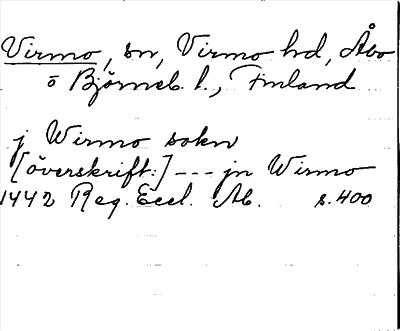 Virmo, sn, Virmo hd, Åbo
o Björneb. l., Finland
j Wirmo sokn
[överskrift:] --- jn Wirmo
1442 Reg. Eccl. Ab. s. 400